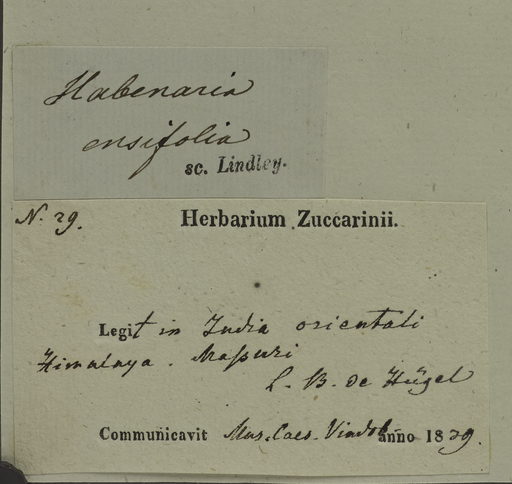 Habenaria
ensifolia
sc. Lindley.
N. 29. Herbarium Zuccarinii.
Legit in India orientali
Himalaya. Maßuri
L. B. de Hügel
Communicavit Mus. Caes. Vindob. anno 1839.